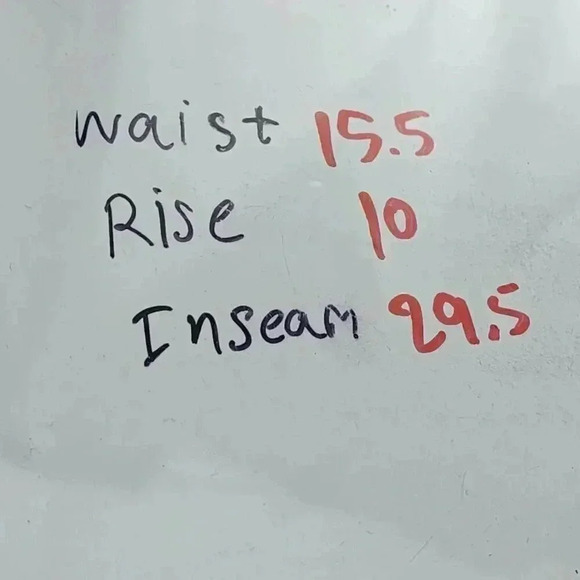 Waist 15.5
Rise 10
Inseam 29.5